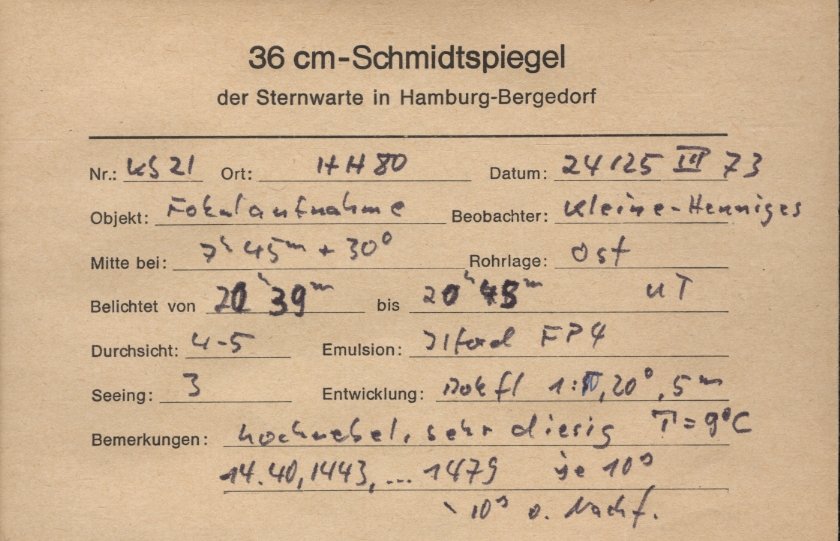 36 cm-Schmidtspiegel
der Sternwarte in Hamburg-Bergedorf
Nr.: KS 21 Ort: HH 80 Datum: 24/25 III 73
Objekt: Fokalaufnahme Beobachter: Kleine-Henniges
Mitte bei: 7h 45m + 30° Rohrlage: Ost
Belichtet von 20h 39m bis 20h 45m UT
Durchsicht: 4-5 Emulsion: Ilford FP4
Seeing: 3 Entwicklung: Dokfl 20°, 5m
Bemerkungen: Hochnebel, sehr diesig T = 9°C
14.40, 1443, ... 1479 je 10s
10s o. Nachf.